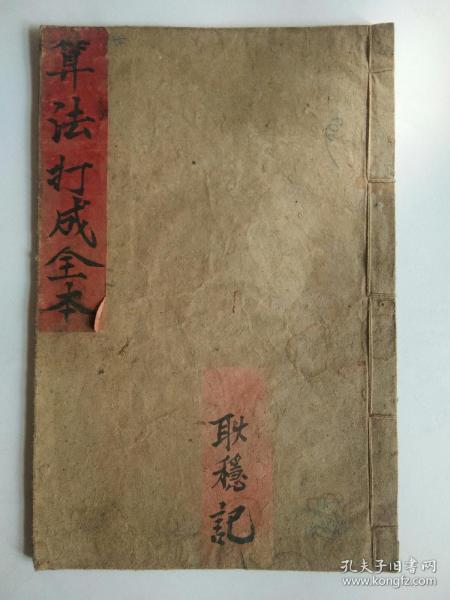 算法打成全本
耿穩記
孔夫子旧书网
www.kongfz.com